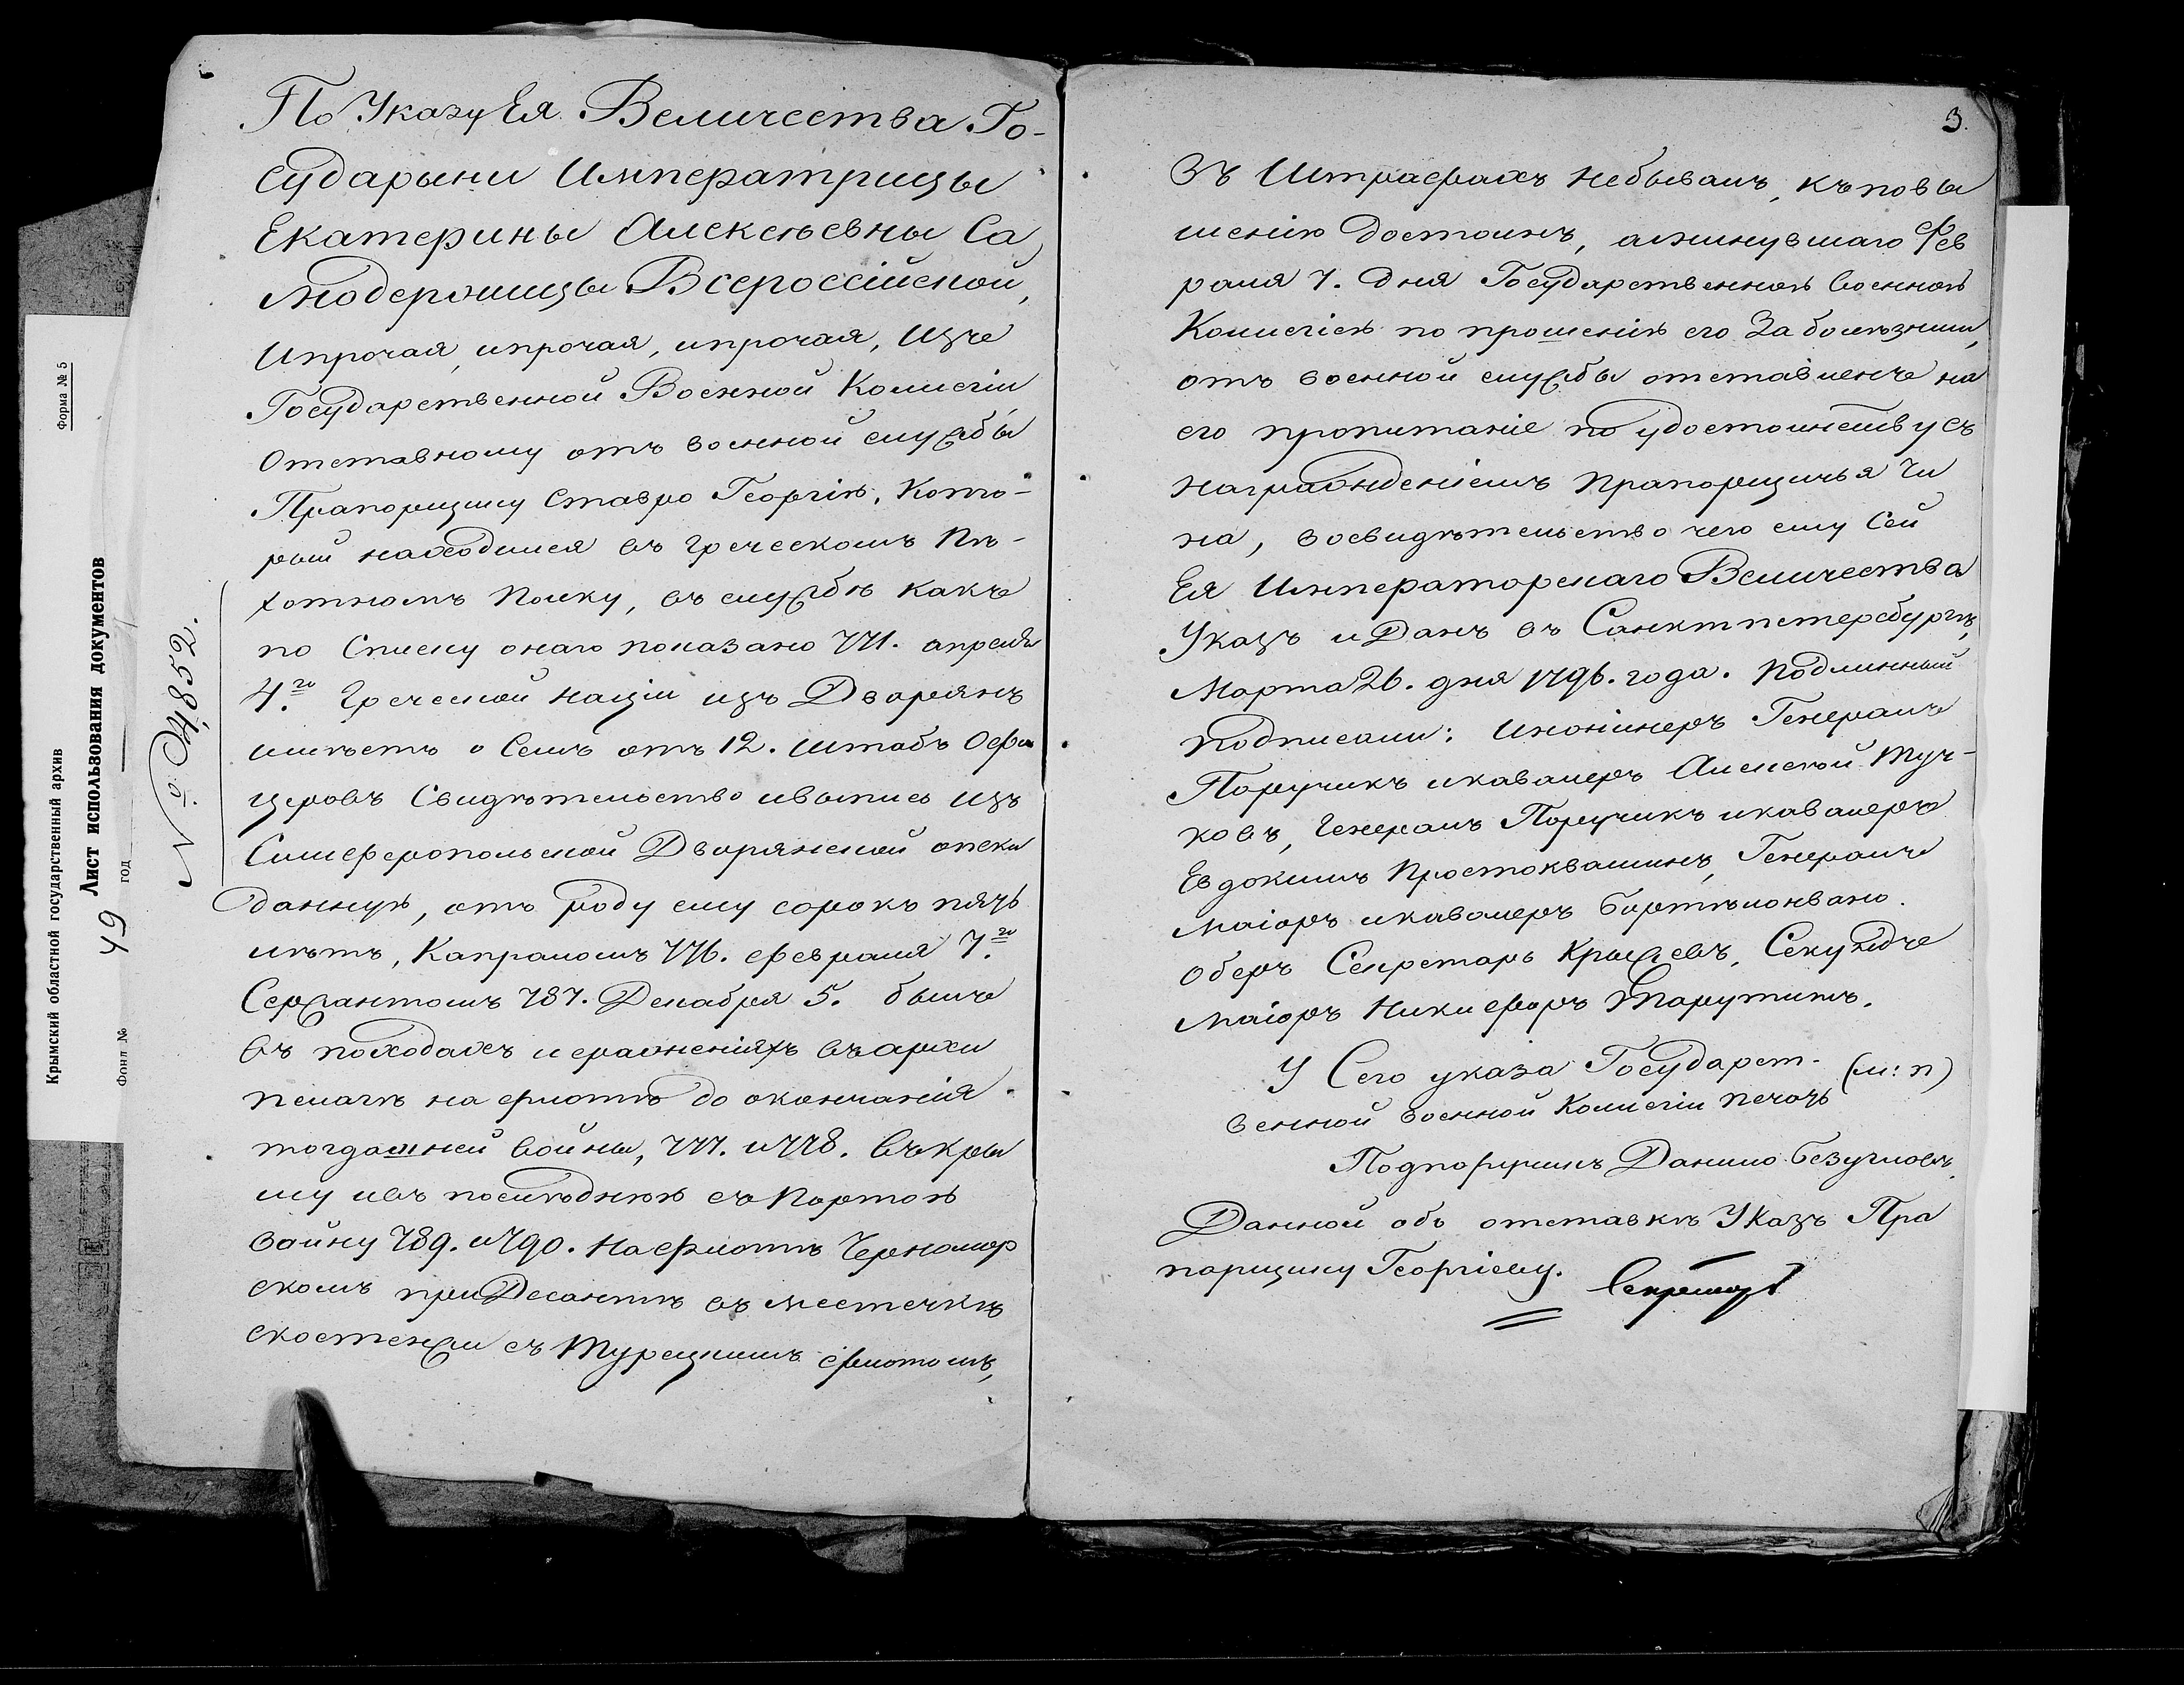 Крымский областной государственный архив
Форма № 5
Лист использования документов
49 год
Фонд №
№ 4852.
По Указу Ея Величества Го-
сударыни Императрицы
Екатерины Алексѣевны Са
модержицы Всероссійской,
ипрочая, ипрочая, ипрочая, Изъ
Государственной Военной Колегіи
Отставному отъ военной службы
Прапорщику Ставро Георгію, Кото-
рый находился въ Греческомъ Пѣ-
хотномъ Полку, въ службѣ какъ
по Списку онаго показано 771. апреля
4.го Греческой націи изъ Дворянъ
имѣетъ о Семъ отъ 12. штабъ Офи
церовъ Свидѣтельство ивыпись изъ
Симферопольской Дворянской опеки
данную, отъ роду ему сорокъ пять
лѣтъ, Капраломъ 776. февраля 7.го
Сержантомъ 787. Декабря 5. былъ
въ походахъ и сраженіяхъ въархи
пелагѣ на флотѣ до окончанія
тогдашней войны, 777. и778. въкры
му ивъ послѣднюю съ Портою
войну 789. и790. на флотѣ Черномор
скомъ при Десантѣ въ местечкѣ
скостенжи съ Турецкимъ флотомъ,
3.
въ Штрафахъ небывалъ, къповы
шенію достоинъ, аминувшаго Фев
раля 7. дня Государственною Военною
Колегіею по прошенію его За болѣзньми,
отъ военной службы отставленъ на
его пропитаніе по удостоинству съ
награжденіемъ прапорщичья Чи
на, восвидѣтельство чего ему Сей
Ея Императорскаго Величества
Указъ и Данъ въ Санктпетербургѣ,
Марта 26. дня 1796. года. Подлинный
подписали: Инженеръ Генералъ
Поручикъ икавалеръ Алексѣй Туч-
ковъ, Генералъ Поручикъ икавалеръ
Евдокимъ Простоквашинъ, Генералъ
маіоръ икавалеръ
Оберъ Секретарь Крыжевъ, Секундъ
маіоръ Никифоръ Тарутинъ.
У Сего указа Государст- (м: п)
венной военной Колегіи печать
Подпоручикъ Данило Безугловъ.
Данной объ отставкѣ Указъ Пра
порщику Георгіеву. Секретарь